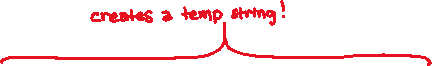 creates a temp string!